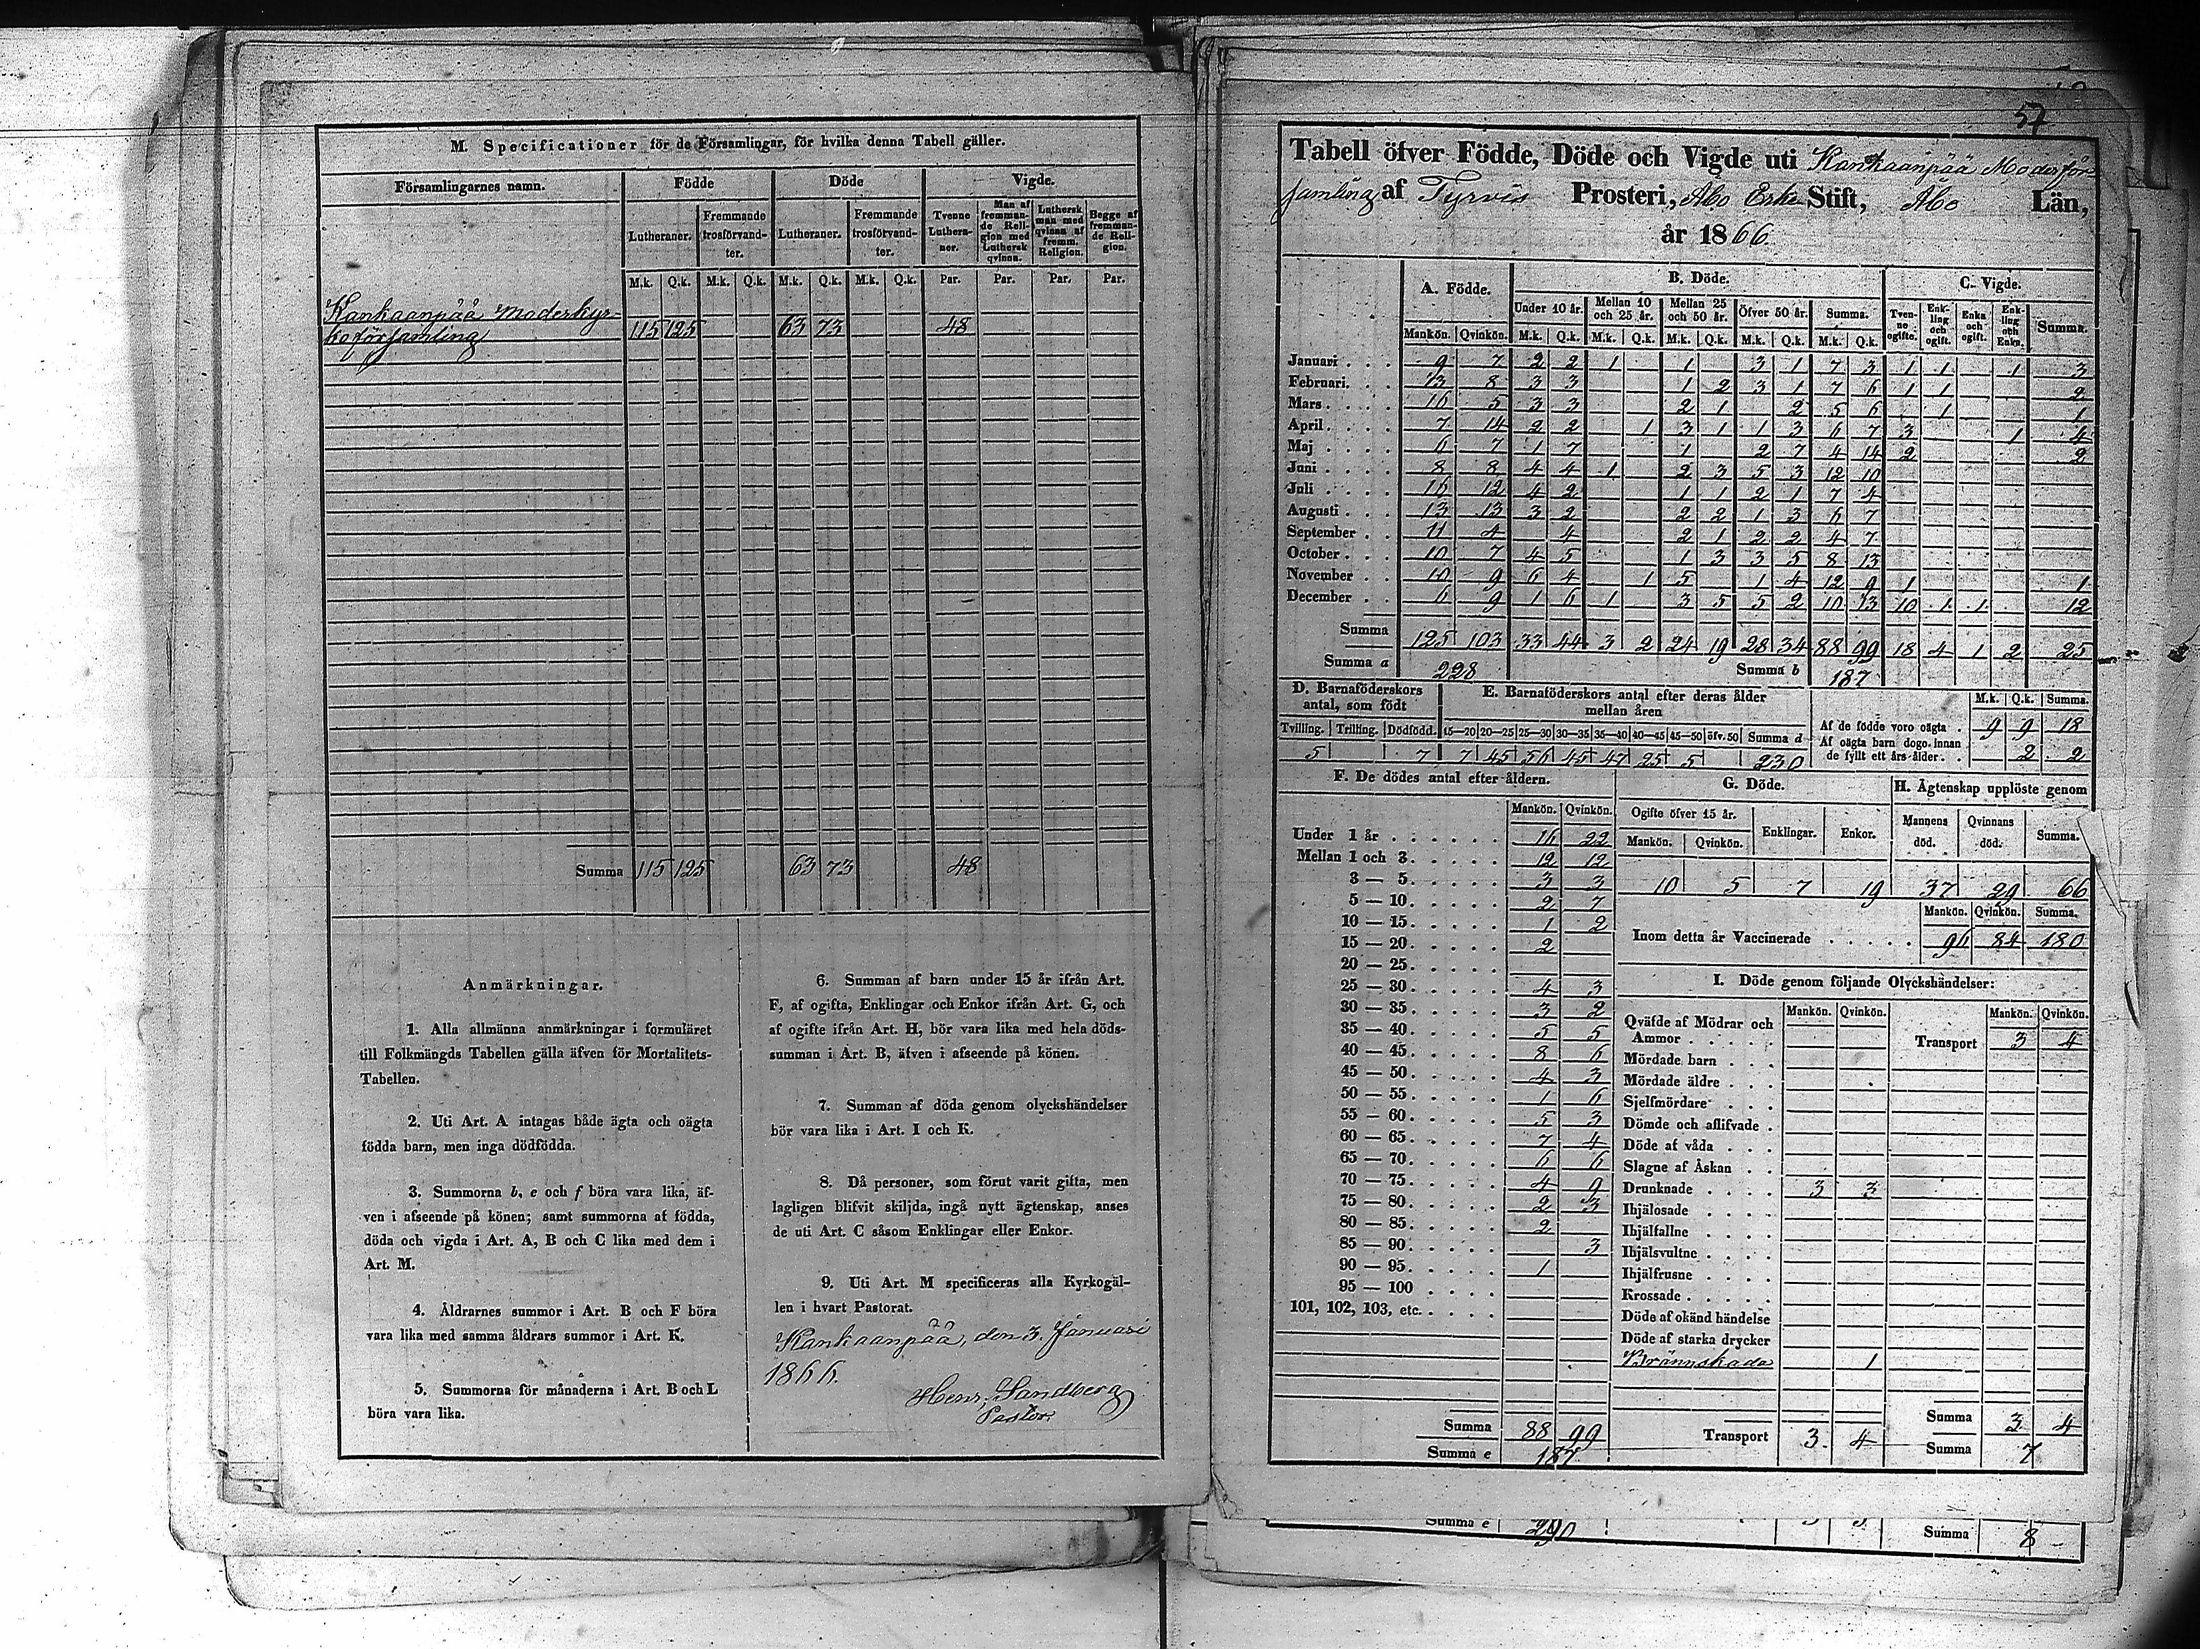 M. Specificationer för de Församlingar, för hvilka denna Tabell gäller.
Församlingarnes namn. Födde Döde Vigde.
Lutheraner. Fremmande trosförvandter. Lutheraner. Fremmande trosförvandter. Tvenne Lutheraner. Man af fremmande Religion med Luthersk qvinna. Luthersk man med qvinna af fremm. Religion. Begge af fremmande Religion.
M.k. Q.k. M.k. Q.k. M.k. Q.k. M.k. Q.k. Par. Par. Par. Par.
Kankaanpää Moderkyr-
koförsamling 115 125 63 73 48
Summa 115 125 63 73 48
Anmärkningar.
1. Alla allmänna anmärkningar i formuläret
till Folkmängds Tabellen gälla äfven för Mortalitets-
Tabellen.
2. Uti Art. A intagas både ägta och oägta
födda barn, men inga dödfödda.
3. Summorna b, e och f böra vara lika, äf-
ven i afseende på könen; samt summorna af födda,
döda och vigda i Art. A, B och C lika med dem i
Art. M.
4. Åldrarnes summor i Art. B och F böra
vara lika med samma åldrars summor i Art. K.
5. Summorna för månaderna i Art. B och L
böra vara lika.
6. Summan af barn under 15 år ifrån Art.
F, af ogifta, Enklingar och Enkor ifrån Art. G, och
af ogifte ifrån Art. H, bör vara lika med hela döds-
summan i Art. B, äfven i afseende på könen.
7. Summan af döda genom olyckshändelser
bör vara lika i Art. I och K.
8. Då personer, som förut varit gifta, men
lagligen blifvit skiljda, ingå nytt ägtenskap, anses
de uti Art. C såsom Enklingar eller Enkor.
9. Uti Art. M specificeras alla Kyrkogäl-
len i hvart Pastorat.
Kankaanpää, den 3. Januari
1866.
Henr. Sandberg
Pastor
57
Tabell öfver Födde, Döde och Vigde uti Kankaanpää Moderför
samling af Tyrvis Prosteri, Åbo Erke Stift, Åbo Län,
år 1866
A. Födde. B. Döde. C. Vigde.
Under 10 år. Mellan 10 och 25 år. Mellan 25 och 50 år. Öfver 50 år. Summa. Tvenne ogifte. Enkling och ogift. Enka och ogift. Enkling och Enka. Summa.
Mankön. Qvinkön. M.k. Q.k. M.k. Q.k. M.k. Q.k. M.k. Q.k. M.k. Q.k.
Januari 9 7 2 2 1 1 3 1 7 3 1 1 1 3
Februari 13 8 3 3 1 2 3 1 7 6 1 1 2
Mars 16 5 3 3 2 1 2 5 6 1 1
April 7 14 2 2 1 3 1 1 3 6 7 3 1 4
Maj 6 7 1 7 1 2 7 4 14 2 2
Juni 8 8 4 4 1 2 3 5 3 12 10
Juli 16 12 4 2 1 1 2 1 7 4
Augusti 13 13 3 2 2 2 1 3 6 7
September 11 4 4 2 1 2 2 4 7
October 10 7 4 5 1 3 3 5 8 13
November 10 9 6 4 1 5 1 4 12 9 1 1
December 6 9 1 6 1 3 5 5 2 10 13 10 1 1 12
Summa 125 103 33 44 3 2 24 19 28 34 88 99 18 4 1 2 25
Summa a 228 Summa b 187
D. Barnaföderskors antal, som födt
Tvilling. Trilling. Dödfödd.
5 7
E. Barnaföderskors antal efter deras ålder mellan åren
15—20 20—25 25—30 30—35 35—40 40—45 45—50 öfv. 50 Summa d
7 45 56 45 47 25 5 230
M.k. Q.k. Summa.
Af de födde voro oägta 9 9 18
Af oägta barn dogo innan
de fyllt ett års ålder 2 2
F. De dödes antal efter åldern.
Mankön. Qvinkön.
Under 1 år 16 22
Mellan 1 och 3 12 12
3 — 5 3 3
5 — 10 2 7
10 — 15 1 2
15 — 20 2
20 — 25
25 — 30 4 3
30 — 35 3 2
35 — 40 5 5
40 — 45 8 6
45 — 50 4 3
50 — 55 1 6
55 — 60 5 3
60 — 65 7 4
65 — 70 6 6
70 — 75 4 9
75 — 80 2 3
80 — 85 2
85 — 90 3
90 — 95 1
95 — 100
101, 102, 103, etc.
Summa 88 99
Summa e 187
G. Döde.
Ogifte öfver 15 år. Enklingar. Enkor.
Mankön. Qvinkön.
10 5 7 19
H. Ägtenskap upplöste genom
Mannens död. Qvinnans död. Summa.
37 29 66
Mankön. Qvinkön. Summa.
Inom detta år Vaccinerade 96 84 180
I. Döde genom följande Olyckshändelser:
Mankön. Qvinkön. Mankön. Qvinkön.
Qväfde af Mödrar och
Ammor Transport 3 4
Mördade barn
Mördade äldre
Sjelfmördare
Dömde och aflifvade
Döde af våda
Slagne af Åskan
Drunknade 3 3
Ihjälosade
Ihjälfallne
Ihjälsvultne
Ihjälfrusne
Krossade
Döde af okänd händelse
Döde af starka drycker
Brännskada 1
Summa 3 4
Transport 3 4 Summa 7
Summa e 290 Summa 8